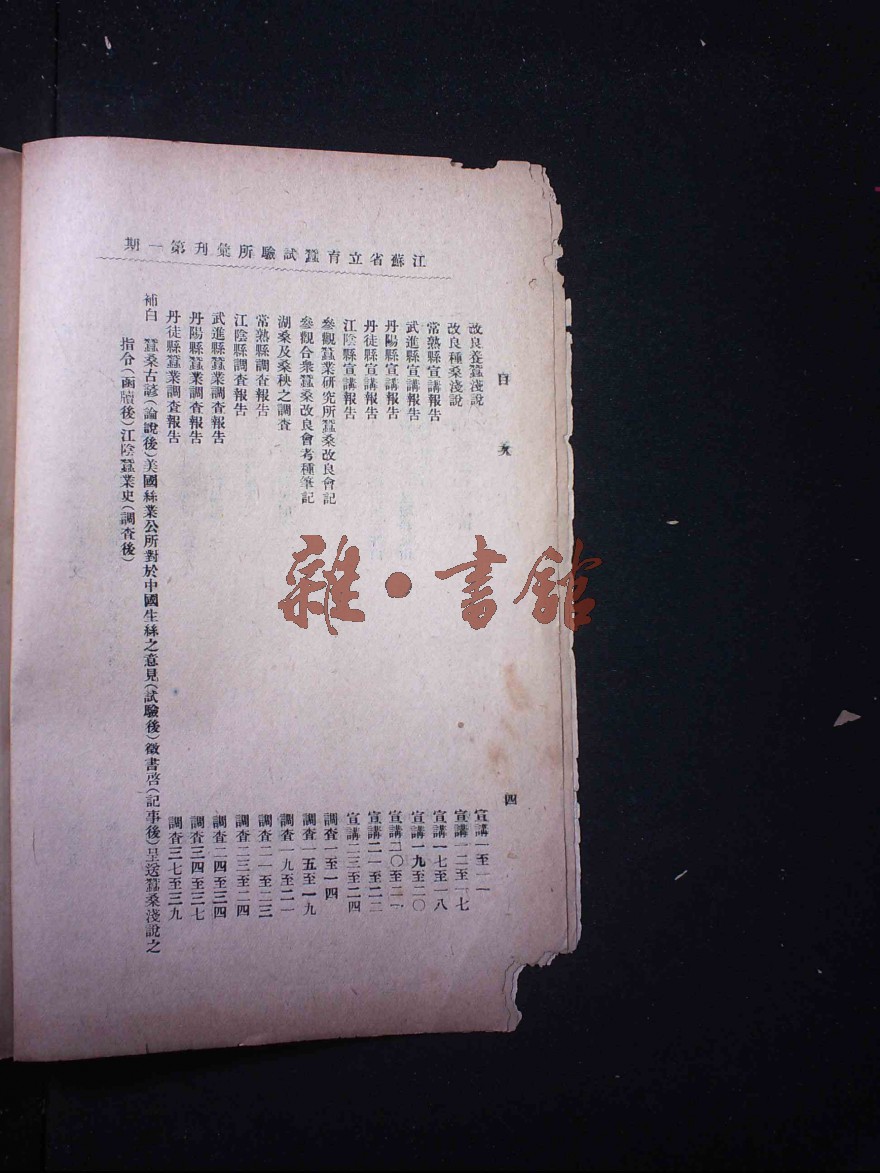 江蘇省立育蠶試驗所彙刊第一期
目次
四
改良養蠶淺說 宣講一至一一
改良種桑淺說 宣講一二至一七
常熟縣宣講報告 宣講一七至一八
武進縣宣講報告 宣講一九至二〇
丹陽縣宣講報告 宣講二〇至二一
丹徒縣宣講報告 宣講二一至二二
江陰縣宣講報告 宣講二三至二四
參觀蠶業研究所蠶桑改良會記 調查一至一四
參觀合衆蠶桑改良會考種筆記 調查一五至一九
湖桑及桑秧之調查 調查一九至二一
常熟縣調查報告 調查二一至二三
江陰縣調查報告 調查二三至二四
武進縣蠶業調查報告 調查二四至三四
丹陽縣蠶業調查報告 調查三四至三七
丹徒縣蠶業調查報告 調查三七至三九
補白 蠶桑古諺(論說後)美國絲業公所對於中國生絲之意見(試驗後)徵書啓(記事後)呈送蠶桑淺說之
指令(函牘後)江陰蠶業史(調查後)
雜·書館